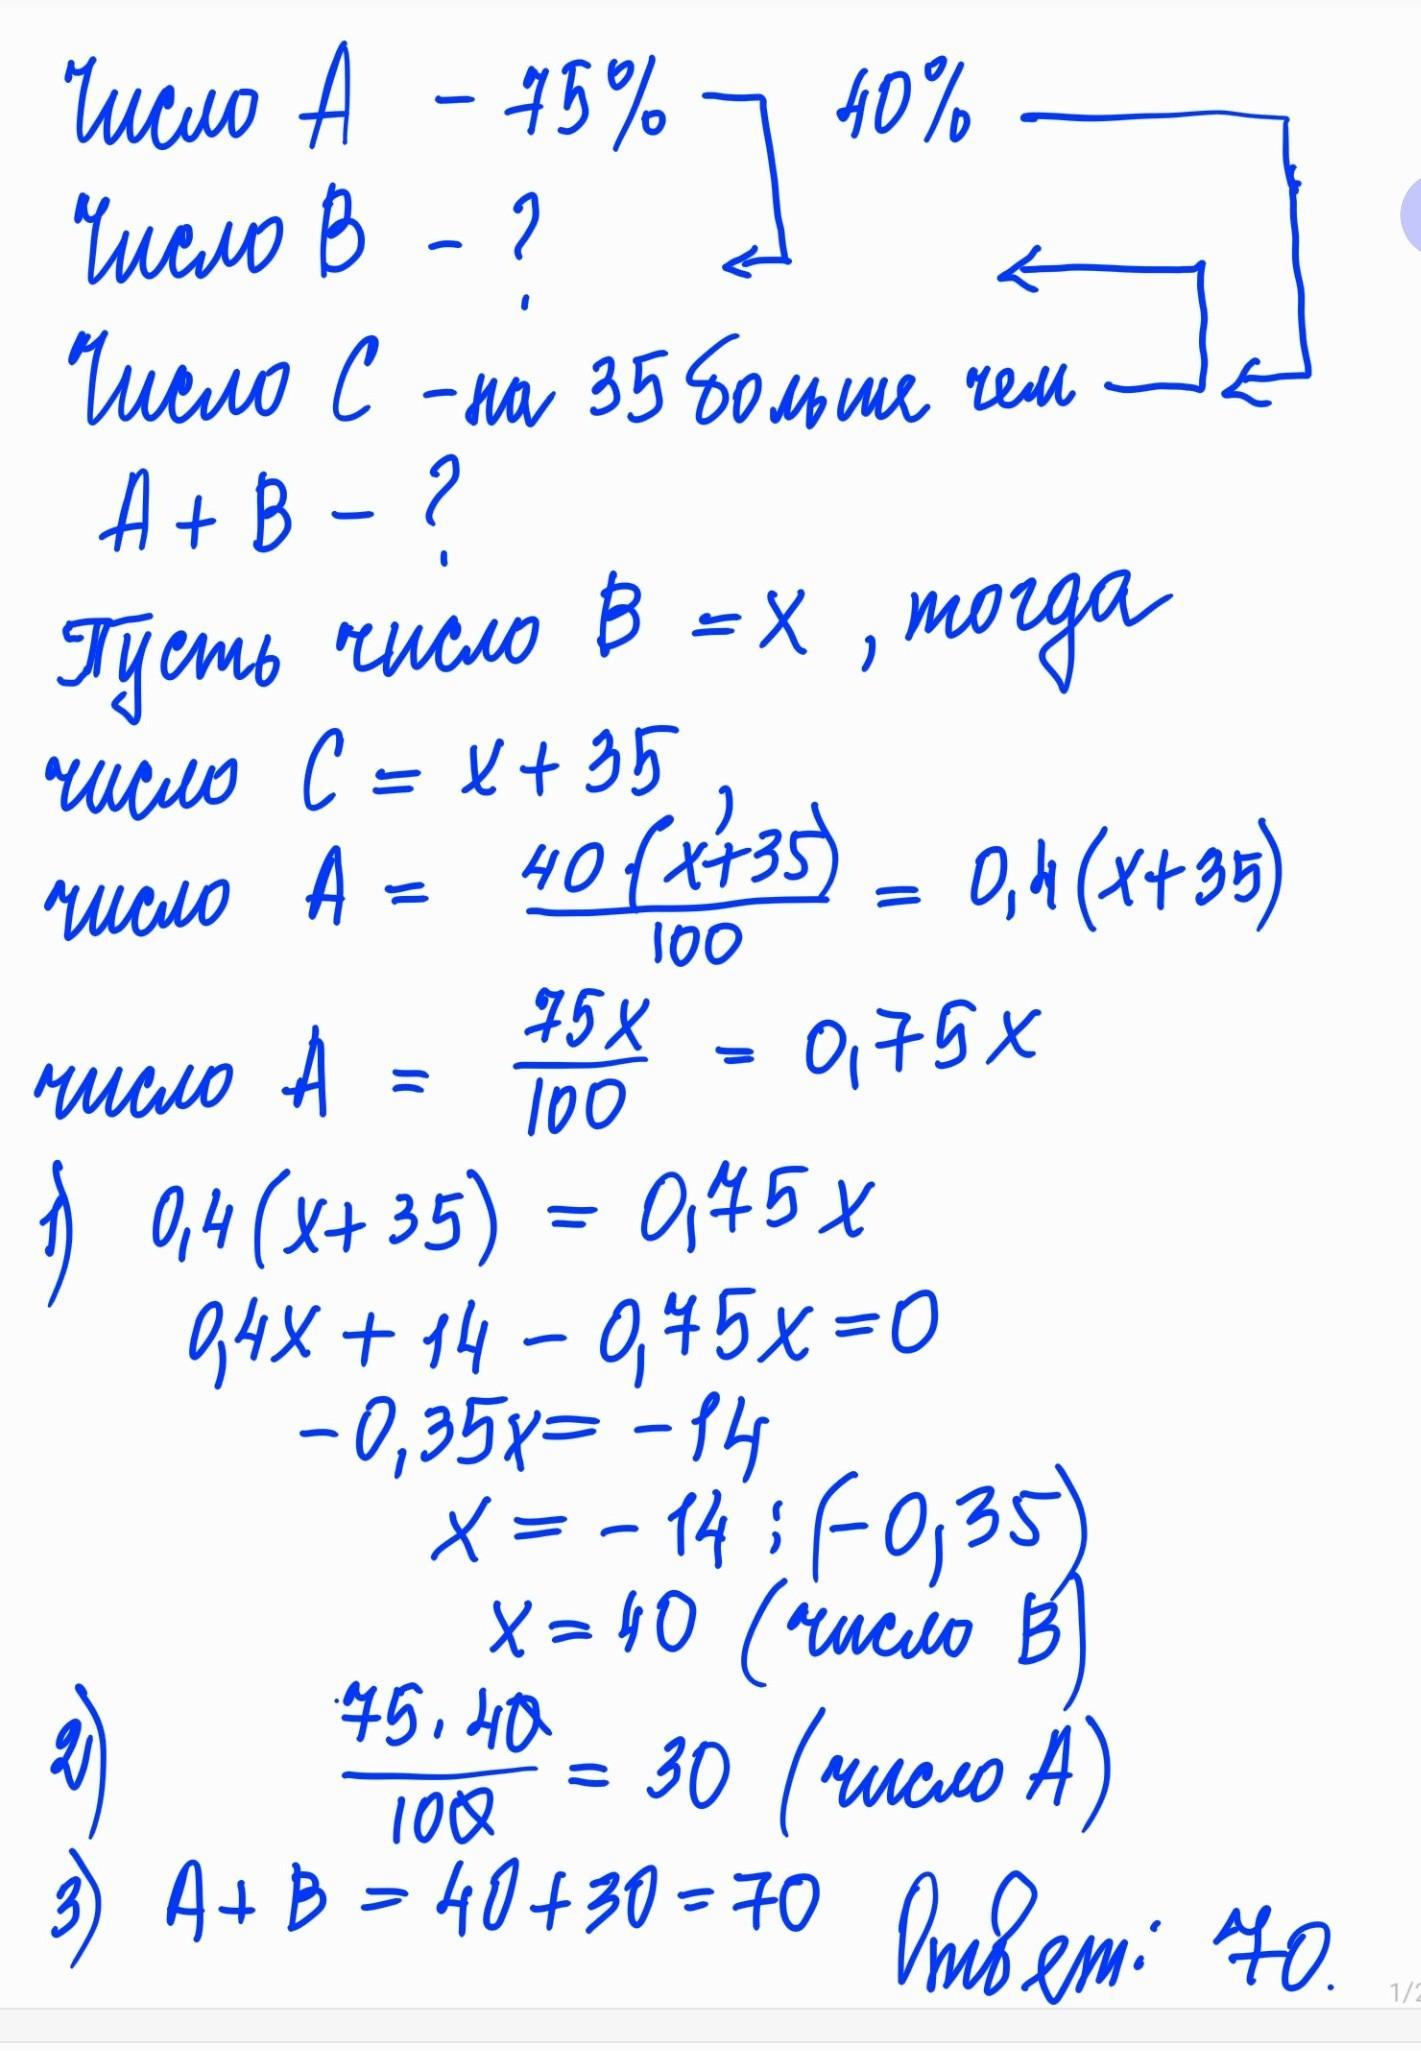 Число А - 75% 40%
Число В - ?
Число С - на 35 больше чем
А + В - ?
Пусть число В = х, тогда
число С = х + 35,
число А = 40(х+35)/100 = 0,4(х+35)
число А = 75х/100 = 0,75х
1) 0,4(х+35) = 0,75х
0,4х + 14 - 0,75х = 0
-0,35х = -14
х = -14 : (-0,35)
х = 40 (число В)
2) 75·40/100 = 30 (число А)
3) А + В = 40 + 30 = 70 Ответ: 70.
1/2